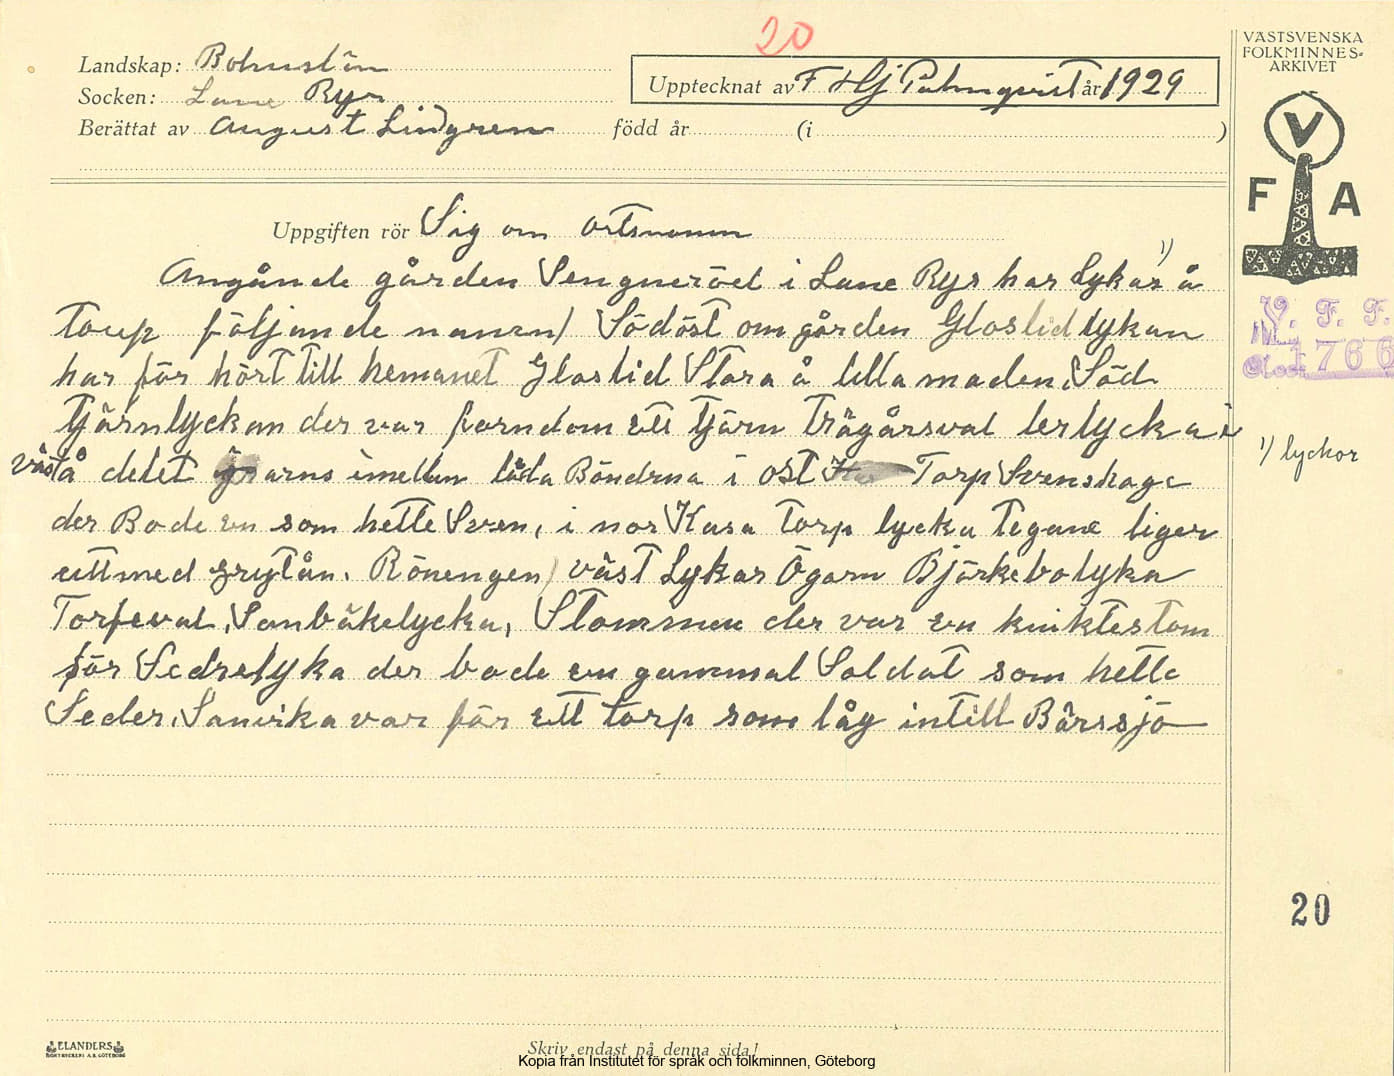 20
Landskap: Bohuslän
Socken: Lane Ryr
Berättat av August Lindgren född år (i )
Upptecknat av F Hj Palmqvist år 1929
VÄSTSVENSKA
FOLKMINNES-
ARKIVET
V
F A
V. F. F.
1766
Uppgiften rör Sig om ortsnamn
Angånde gården Sengneröd i Lane Ryr har Lykar 1) å
torp följande namn) Södöst om gården Gloslidlykan
har för hört till hemanet Gloslid Stora å lilla maden, Söd
Tjärnlyckan der var forndom ett tjärn Trägårsval lerlycka i
väst å delet imellan båda Böndrna i ost Torp Svenshage
der Bode en som hette Sven, i nor Kasa torp lycka Tegane liger
uttmed grytån. Rönengen) väst Lykar Ögarn Björkebolyka
Torpeval, Sanbäkelycka, Stommen der var en kniktestom
för Sedrelyka der bode en gammal Soldat som hette
Seder, Sanvika var för ett torp som låg intill Bärssjö
1) lyckor
20
ELANDERS
BOKTRYCKERI A.B. GÖTEBORG
Skriv endast på denna sida!
Kopia från Institutet för språk och folkminnen, Göteborg